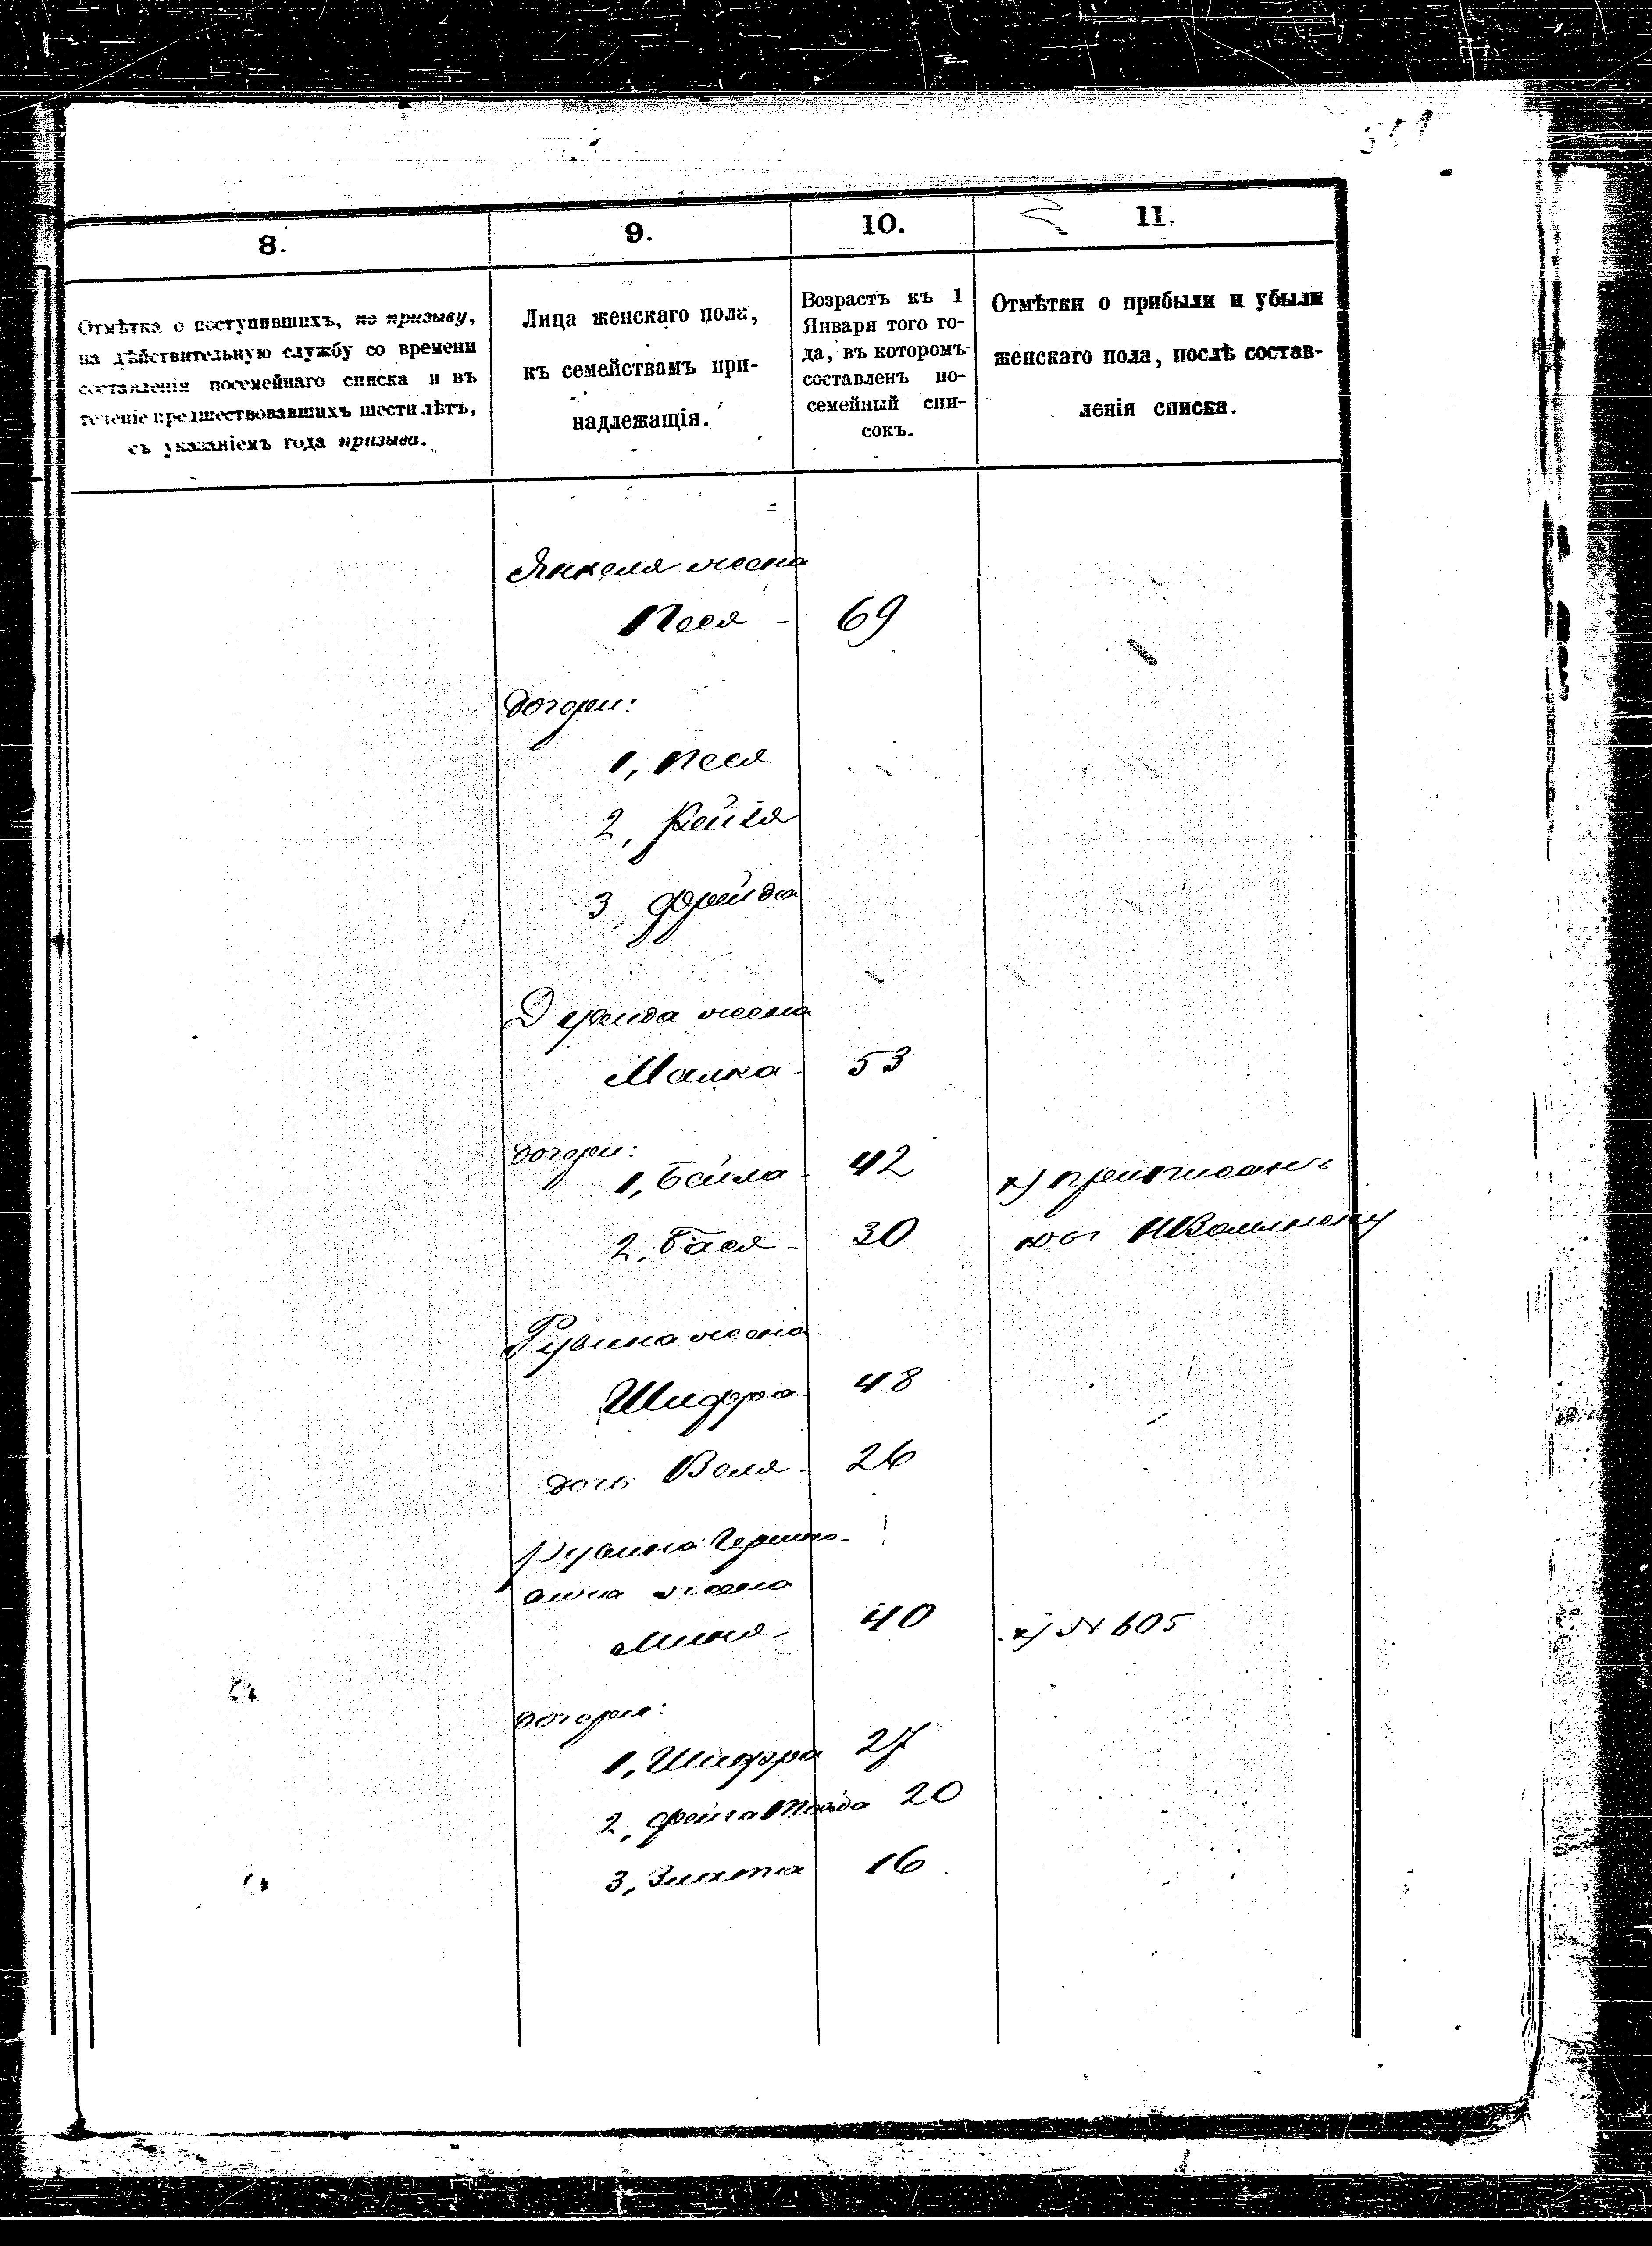 351
8.
9.
10.
11.
Отмѣтка о поступившихъ, по призыву,
на дѣйствительную службу со времени
составленія посемейнаго списка и въ
теченіе предшествовавшихъ шести лѣтъ,
съ указаніемъ года призыва.
Лица женскаго пола,
къ семействамъ при-
надлежащія.
Возрастъ къ 1
Января того го-
да, въ которомъ
составленъ по-
семейный спи-
сокъ.
Отмѣтки о прибыли и убыли
женскаго пола, послѣ состав-
ленія списка.
Янкеля жена
Песя - 69
дочери:
1, Песя
2, Рейзя
3 Фрейда
Давида жена
Малка - 53
дочери:
1, Бейла - 42 х) приписанъ
2, Бася - 30
Рувина жена
Шифра 48
дочь Воля - 26
Рувина Гершко-
вича жена
Миня - 40 х) № 605
дочери:
1, Шифра 27
2, Фейга 20
3, Злата 16